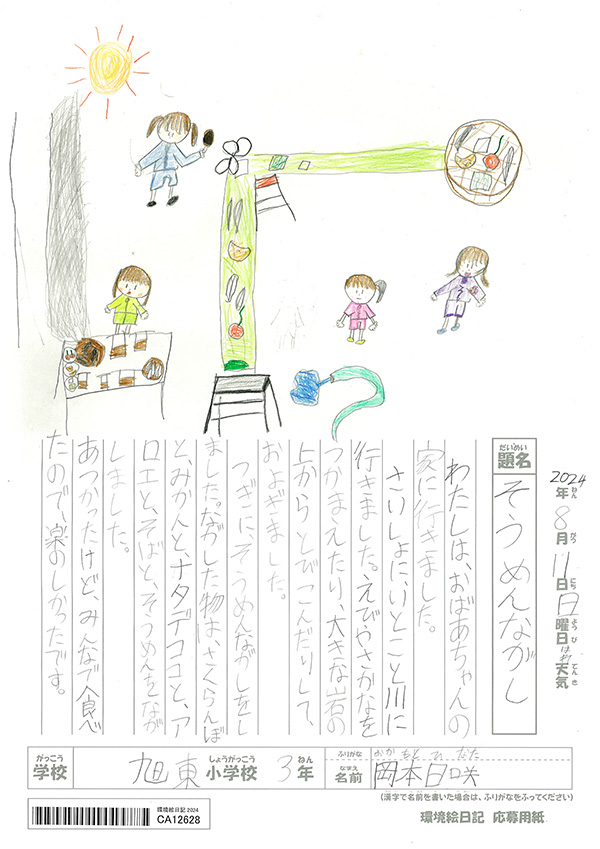 2024年ねん8月がつ11日にち日曜日ようび晴れ天気てんき
だいめい
題名 そうめんながし
わたしは、おばあちゃんの
家に行きました。
さいしょに、いとこと川に
行きました。えびやさかなを
つかまえたり、大きな岩の
上からとびこんだりして、
およぎました。
つぎに、そうめんながしをし
ました。ながした物は、さくらんぼ
と、みかんと、ナタデココと、ア
ロエと、そばと、そうめんをなが
しました。
あつかったけど、みんなで食べ
たので、楽のしかったです。
がっこう しょうがっこう ねん
学校 旭東小学校 3年
ふりがな おかもと ひなた
なまえ
名前 岡本日咲
(漢字で名前を書いた場合は、ふりがなをふってください)
環境絵日記 2024
CA12628
環境絵日記 応募用紙